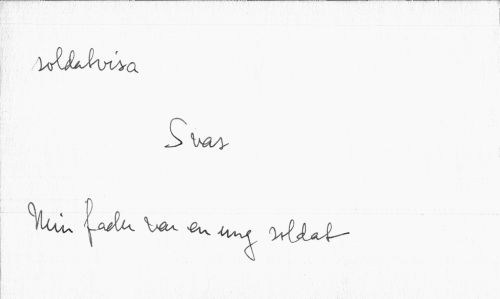 soldatvisa
Svar
Min fader var en ung soldat